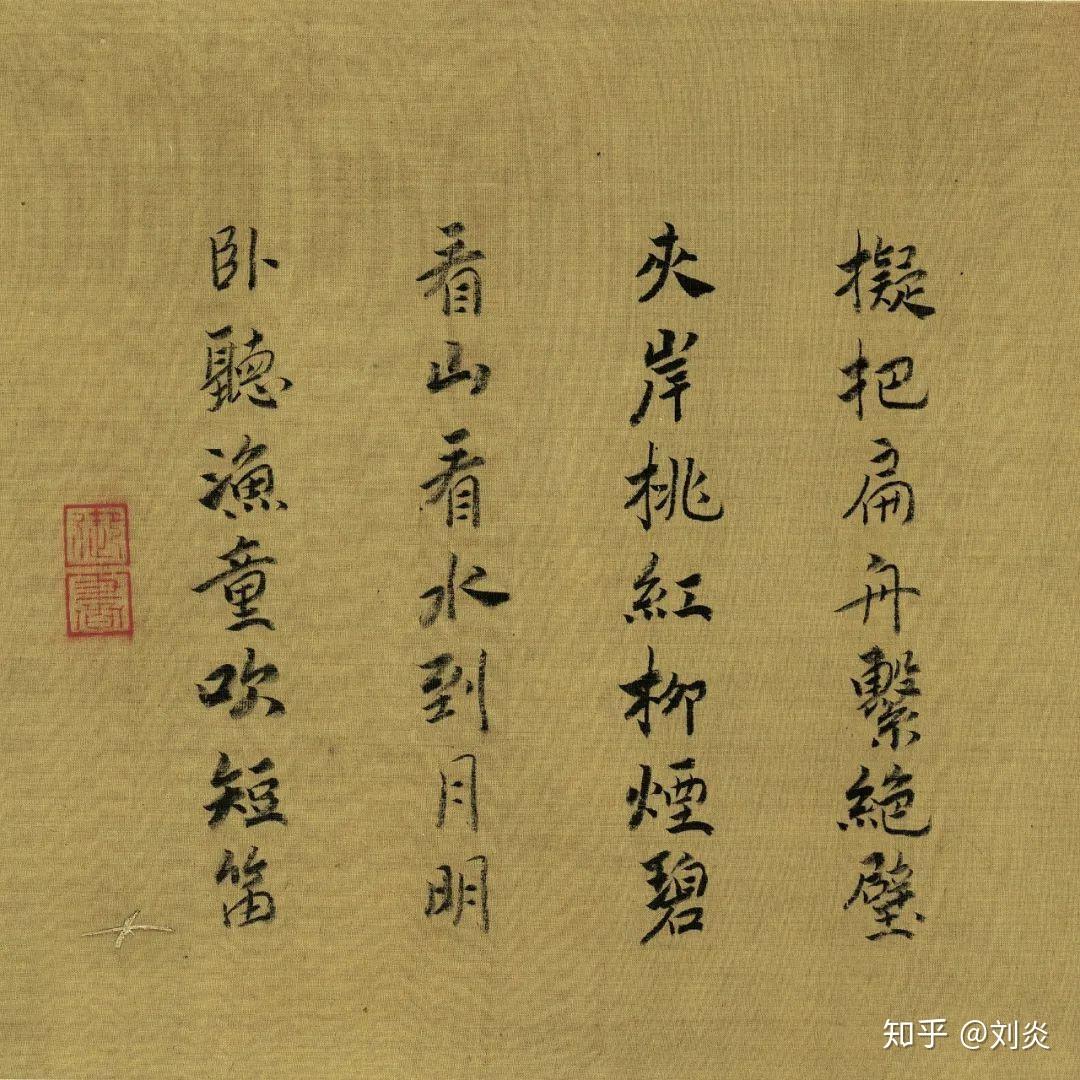 擬把扁舟繫絕壁
夾岸桃紅柳煙碧
看山看水到月明
卧聽漁童吹短笛
御書
知乎 @刘炎